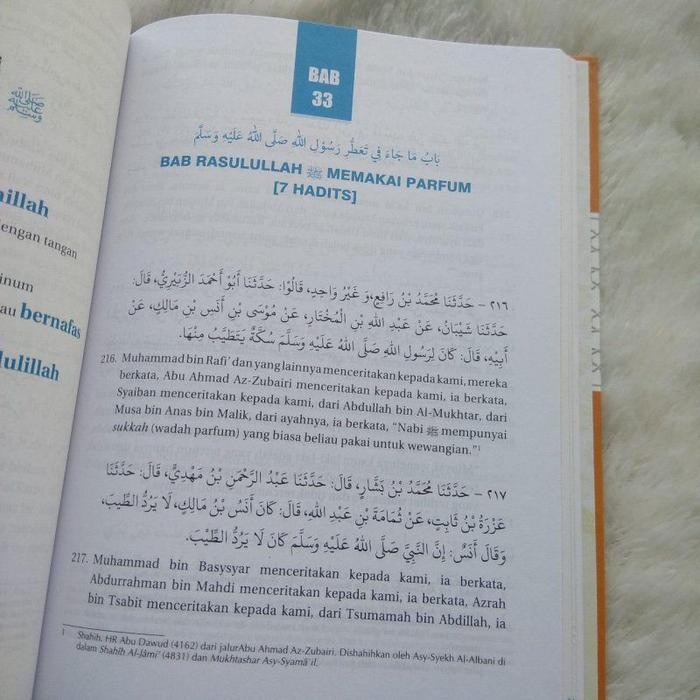 ﷺ
nillah
lengan tangan
inum
au bernafas
dulillah
BAB
33
بَابُ مَا جَاءَ فِي تَعَطُّرِ رَسُوْلِ اللهِ صَلَّى اللهُ عَلَيْهِ وَسَلَّمَ
BAB RASULULLAH ﷺ MEMAKAI PARFUM
[7 HADITS]
٢١٦ – حَدَّثَنَا مُحَمَّدُ بْنُ رَافِعٍ، وَ غَيْرُ وَاحِدٍ، قَالُوْا: حَدَّثَنَا أَبُوْ أَحْمَدَ الزُّبَيْرِيُّ، قَالَ:
حَدَّثَنَا شَيْبَانُ، عَنْ عَبْدِ اللهِ بْنِ الْمُخْتَارِ، عَنْ مُوْسَى بْنِ أَنَسِ بْنِ مَالِكٍ، عَنْ
أَبِيْهِ، قَالَ: كَانَ لِرَسُوْلِ اللهِ صَلَّى اللهُ عَلَيْهِ وَسَلَّمَ سُكَّةٌ يَتَطَيَّبُ مِنْهَا.
216. Muhammad bin Rafi' dan yang lainnya menceritakan kepada kami, mereka
berkata, Abu Ahmad Az-Zubairi menceritakan kepada kami, ia berkata,
Syaiban menceritakan kepada kami, dari Abdullah bin Al-Mukhtar, dari
Musa bin Anas bin Malik, dari ayahnya, ia berkata, "Nabi ﷺ mempunyai
sukkah (wadah parfum) yang biasa beliau pakai untuk wewangian."¹
٢١٧ – حَدَّثَنَا مُحَمَّدُ بْنُ بَشَّارٍ، قَالَ: حَدَّثَنَا عَبْدُ الرَّحْمَنِ بْنُ مَهْدِيٍّ، قَالَ: حَدَّثَنَا
عَزْرَةُ بْنُ ثَابِتٍ، عَنْ ثُمَامَةَ بْنِ عَبْدِ اللهِ، قَالَ: كَانَ أَنَسُ بْنُ مَالِكٍ، لَا يَرُدُّ الطِّيْبَ،
وَقَالَ أَنَسٌ: إِنَّ النَّبِيَّ صَلَّى اللهُ عَلَيْهِ وَسَلَّمَ كَانَ لَا يَرُدُّ الطِّيْبَ.
217. Muhammad bin Basysyar menceritakan kepada kami, ia berkata,
Abdurrahman bin Mahdi menceritakan kepada kami, ia berkata, Azrah
bin Tsabit menceritakan kepada kami, dari Tsumamah bin Abdillah, ia
1 Shahih. HR Abu Dawud (4162) dari jalurAbu Ahmad Az-Zubairi. Dishahihkan oleh Asy-Syekh Al-Albani di
dalam Shahîh Al-Jâmi' (4831) dan Mukhtashar Asy-Syamâ'il.